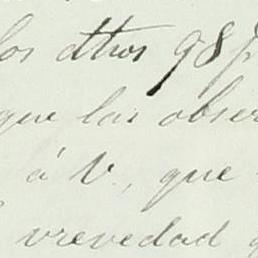 los dthos 98 p
que las obser
á V., que
vrevedad